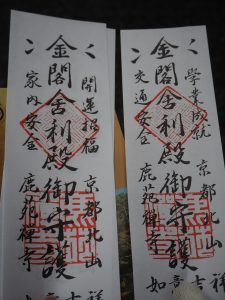 學業成就 京都北山
金閣舍利殿御守護
交通安全 鹿苑禅寺
如意吉祥
開運招福 京都北山
金閣舍利殿御守護
家内安全 鹿苑禅寺
意吉祥